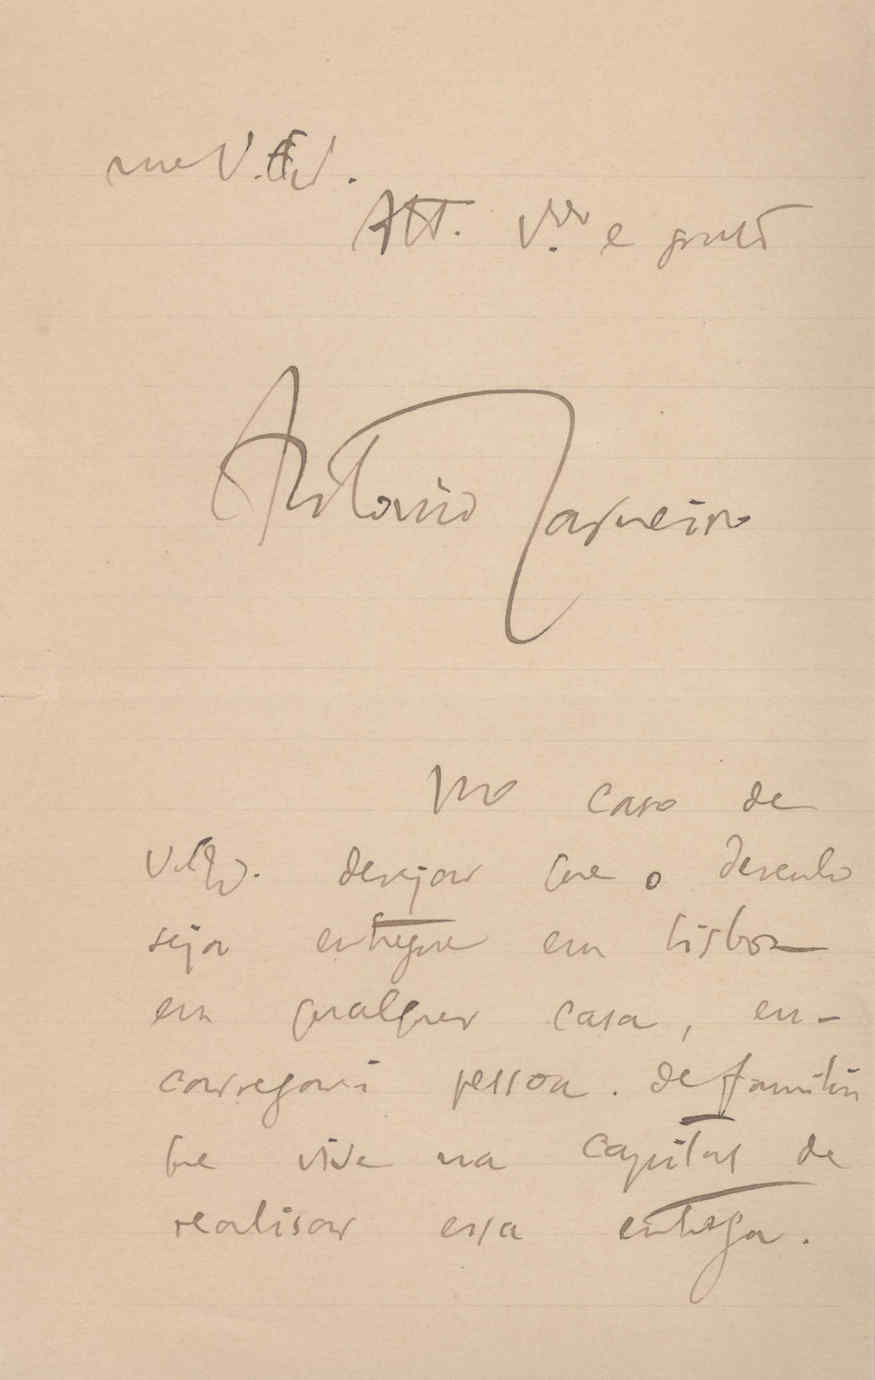 me V. Ex.
Att. V.or e grato
Antonio Carneiro
No caso de
V. Ex. desejar que o desenho
seja entregue em Lisboa
em qualquer casa, en-
carregarei pessoa de familia
que vive na capital de
realisar essa entrega.